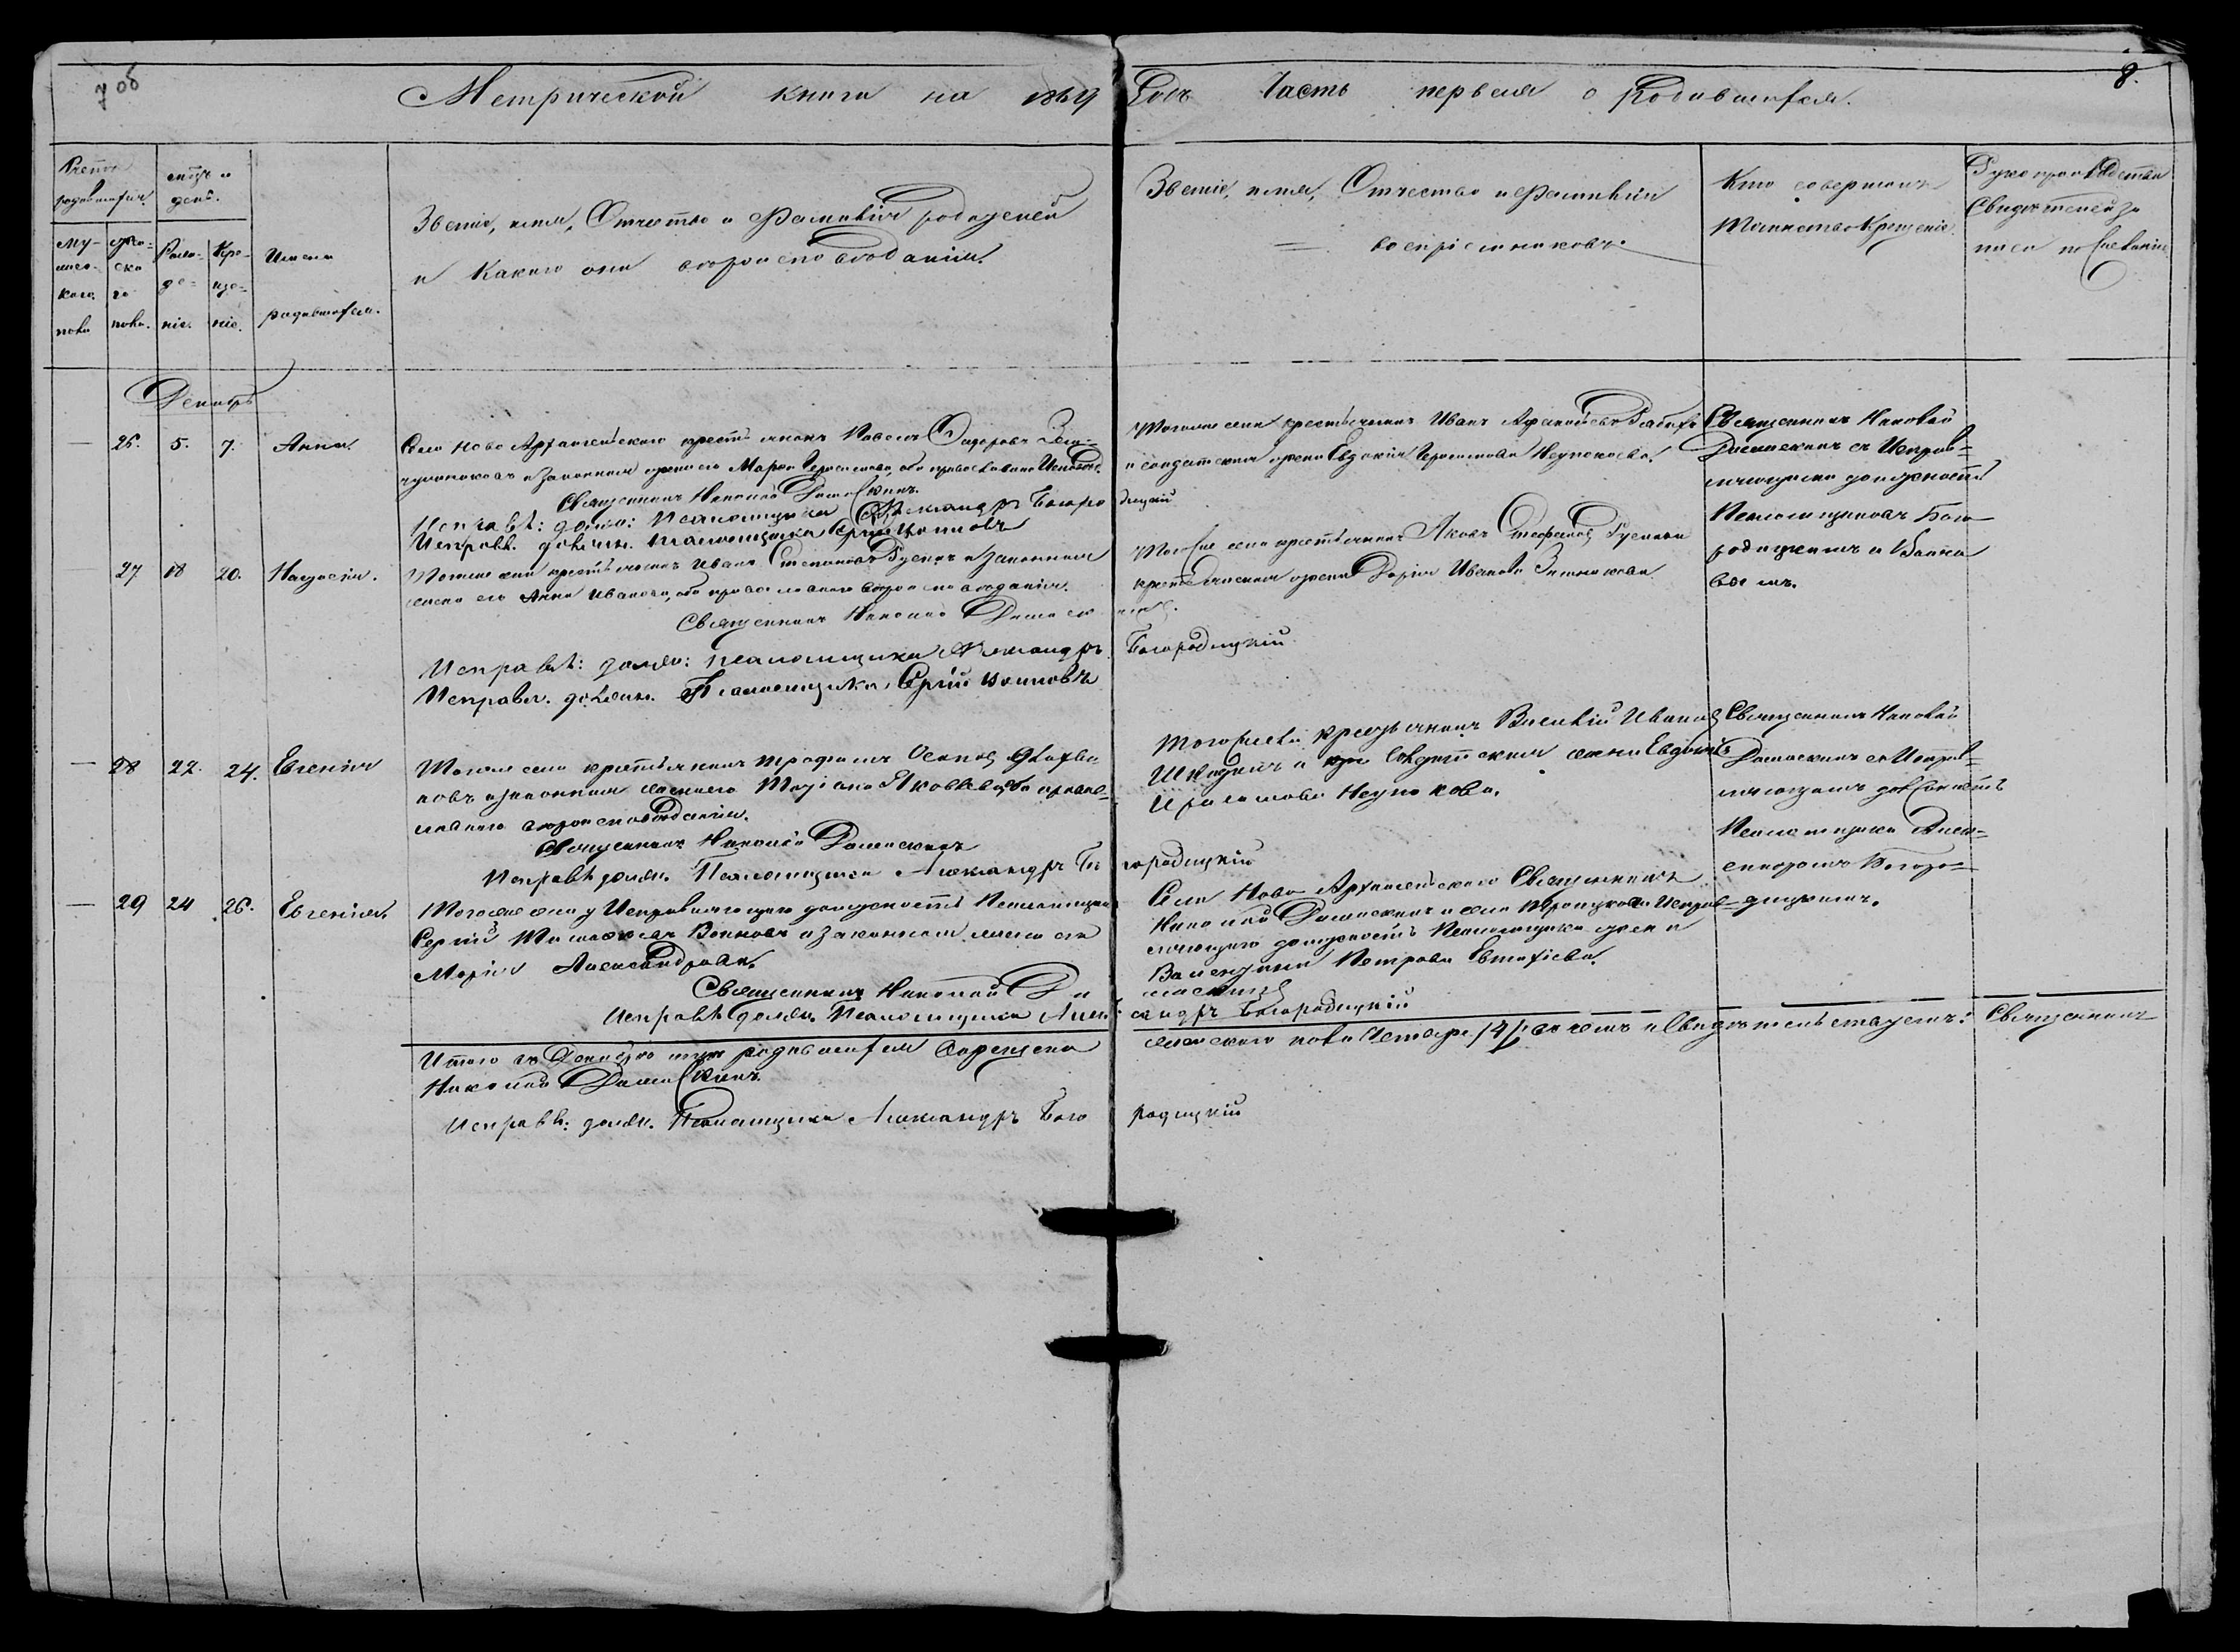 7 об
8.
Метрической книги на 1869 Годъ Часть первая о Родившихся.
Счетъ родившихся.
мѣсць и день.
Му-
жес-
каго
пола
Жен-
ска
го
пола.
Рож-
де-
ніе.
Кре-
ще-
ніе.
Имена
родившихся.
Званіе, имя, Отчество и Фамилія родителей
и Какого они вѣроисповѣданія.
Званіе, имя, Отчество и Фамилія
воспріемниковъ.
Кто совершалъ
Таинство Крещенія.
Рукоприкладство
Свидѣтелей за
писи по желанію
Декабрь
— 26. 5. 7. Анна.
Села Ново Архангельского крестьянинъ Павелъ Сидоровъ
и законная жена его Марѳа Герасимова, оба православнаго Исповѣд.
Священникъ Николай Дамаскинъ.
Исправл: долж: Псаломщика Александръ Богородицкій
Исправл. должн. Псаломщика Сергій Воиновъ
Тогоже села крестьянинъ Иванъ
и солдатская жена Евдокія Герасимова Неупокоева.
Священникъ Николай
Дамаскинъ съ Исправ-
ляющими должность
Псаломщиковъ Бого-
родицкимъ и Воино-
вымъ.
27 18 20. Наталія.
Тогоже села крестьянинъ Иванъ Степановъ Гускинъ и законная
жена его Анна Иванова, оба православнаго вѣроисповѣданія.
Священникъ Николай Дамаскинъ.
Исправл: долж: псаломщика Александръ Богородицкій
Исправл. должн. Псаломщика Сергій Воиновъ
Тогоже села крестьянинъ Яковъ Стефановъ
крестьянская жена Дарія Иванова
— 28 22. 24. Евгенія
Тогоже села крестьянинъ Трофимъ Осиповъ
новъ и законная жена его Татіана Яковлева, оба право-
славнаго вѣроисповѣданія.
Священникъ Николай Дамаскинъ
Исправл должн. Псаломщика Александръ Богородицкій
Того села Крестьянинъ Василій Ивановъ
и Солдатская жена Евдокія
Герасимова Неупокоева.
Священникъ Николай
Дамаскинъ съ Исправ-
ляющимъ должность
Псаломщика Алек-
сандромъ Богоро-
дицкимъ.
— 29 24 26. Евгенія.
Тогоже села у Исправляющаго должность Псаломщика
Сергій Воиновъ и законная жена его
Марія Александрова.
Священникъ Николай Дамаскинъ
Исправл должн. Псаломщика Александръ Богородицкій
Села Ново Архангельского Священникъ
Николай Дамаскинъ и села Троицкаго Исправ-
ляющаго должность Псаломщика жена
Валентина Петрова Евтихіева.
Итого въ Декабрѣ родившихся окрещено женского пола Четыре /4/ въ чемъ и Свидѣтельствуемъ: Священникъ
Николай Дамаскинъ.
Исправл: должн. Псаломщика Александръ Богородицкій